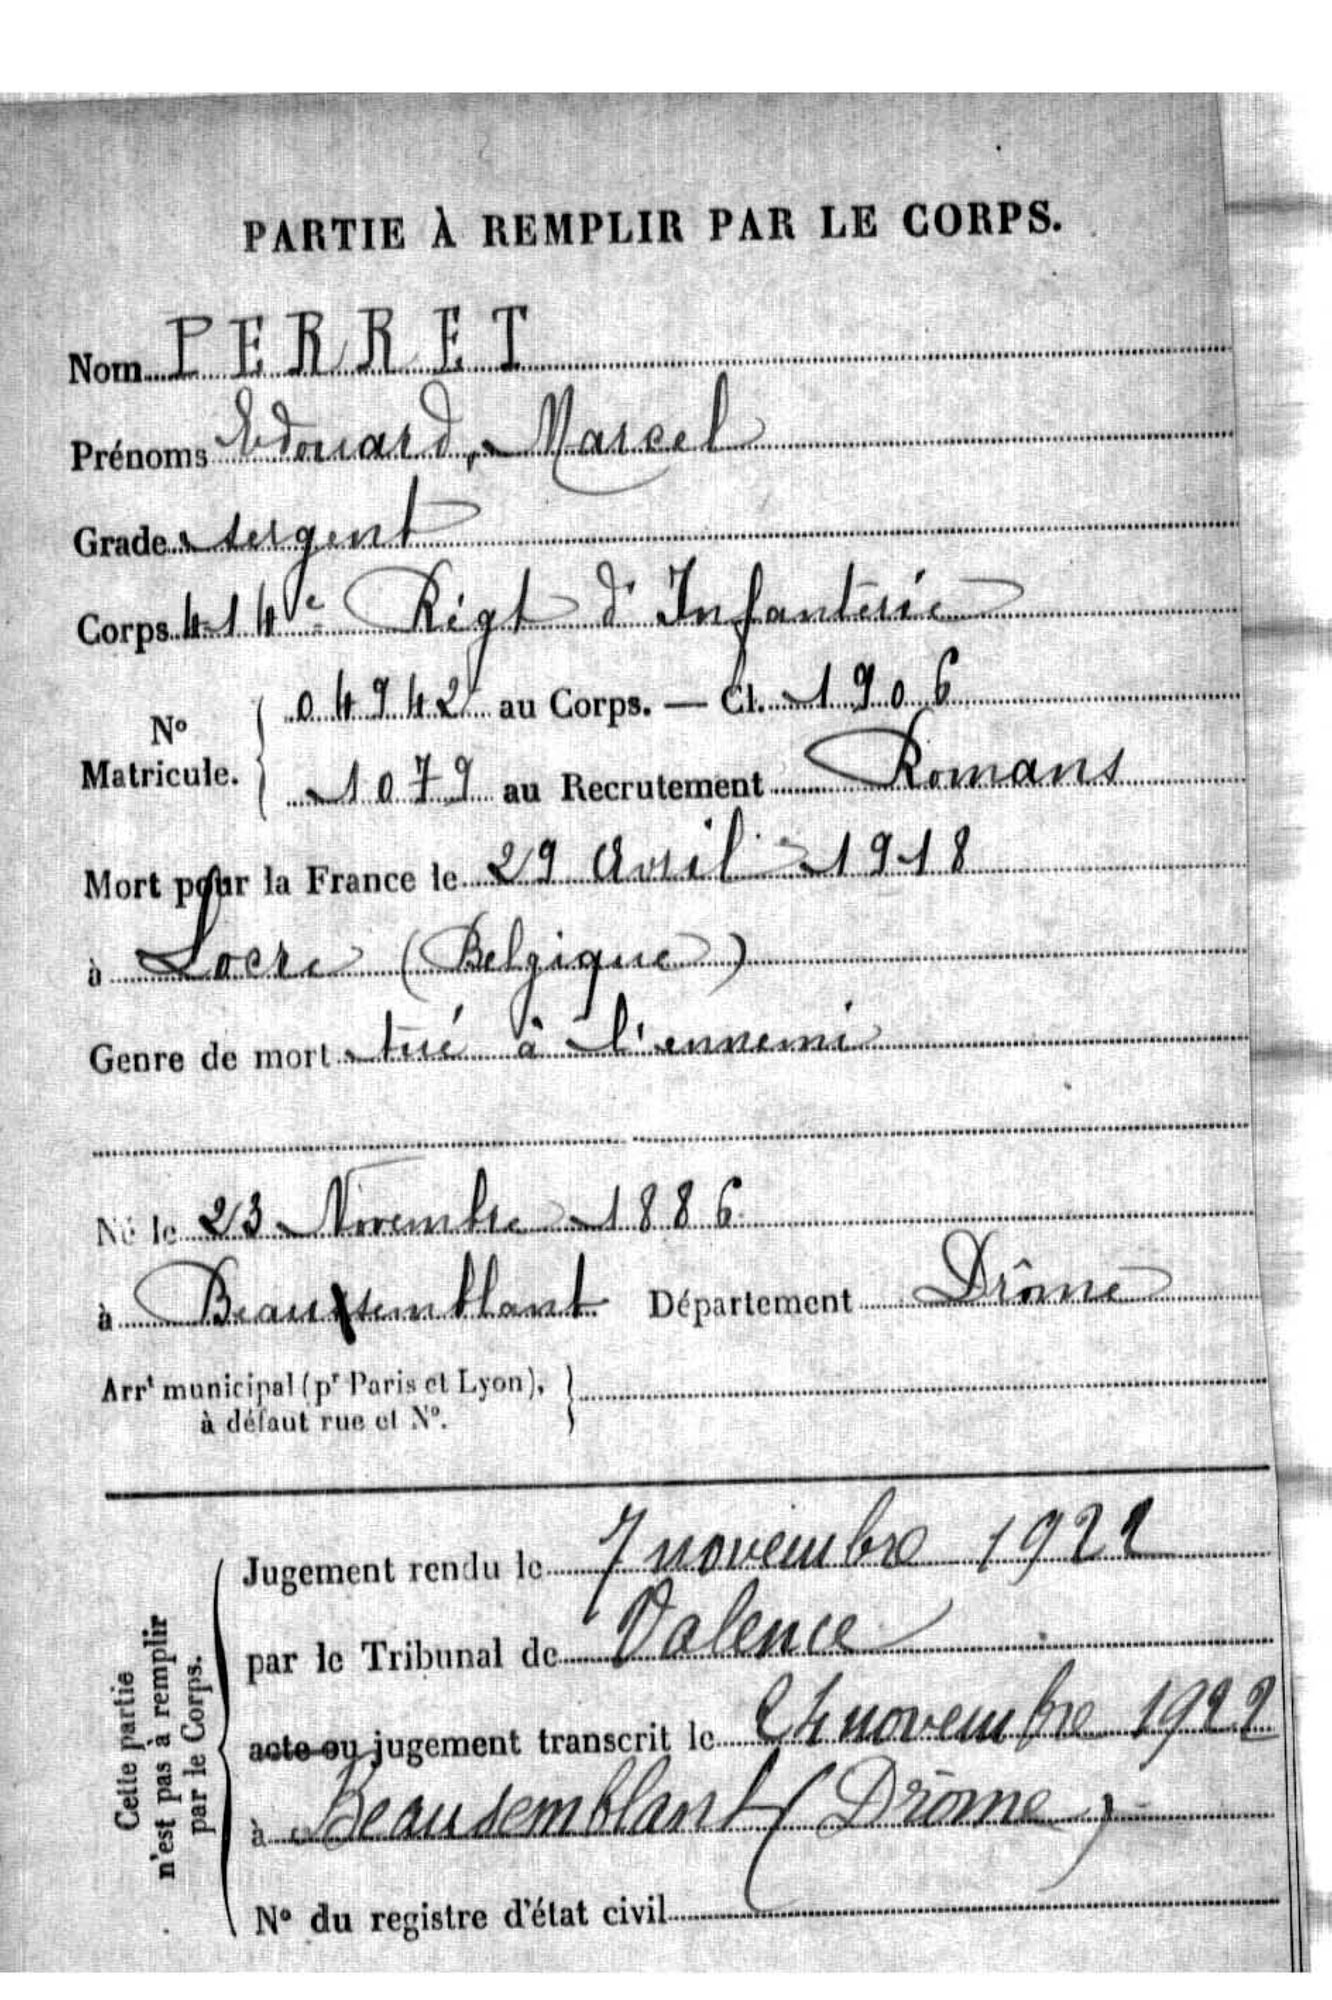 PARTIE À REMPLIR PAR LE CORPS.
Nom PERRET
Prénoms Edouard, Marcel
Grade sergent
Corps 414e Régt d'Infanterie
No Matricule. { 04942 au Corps. — Cl. 1906
1079 au Recrutement Romans
Mort pour la France le 29 Avril 1918
à Locre (Belgique)
Genre de mort tué à l'ennemi
Né le 23 Novembre 1886
à Beausemblant Département Drôme
Arrt municipal (pr Paris et Lyon), }
à défaut rue et No.
Cette partie
n'est pas à remplir
par le Corps.
Jugement rendu le 7 novembre 1922
par le Tribunal de Valence
acte ou jugement transcrit le 24 novembre 1922
à Beausemblant (Drôme)
No du registre d'état civil